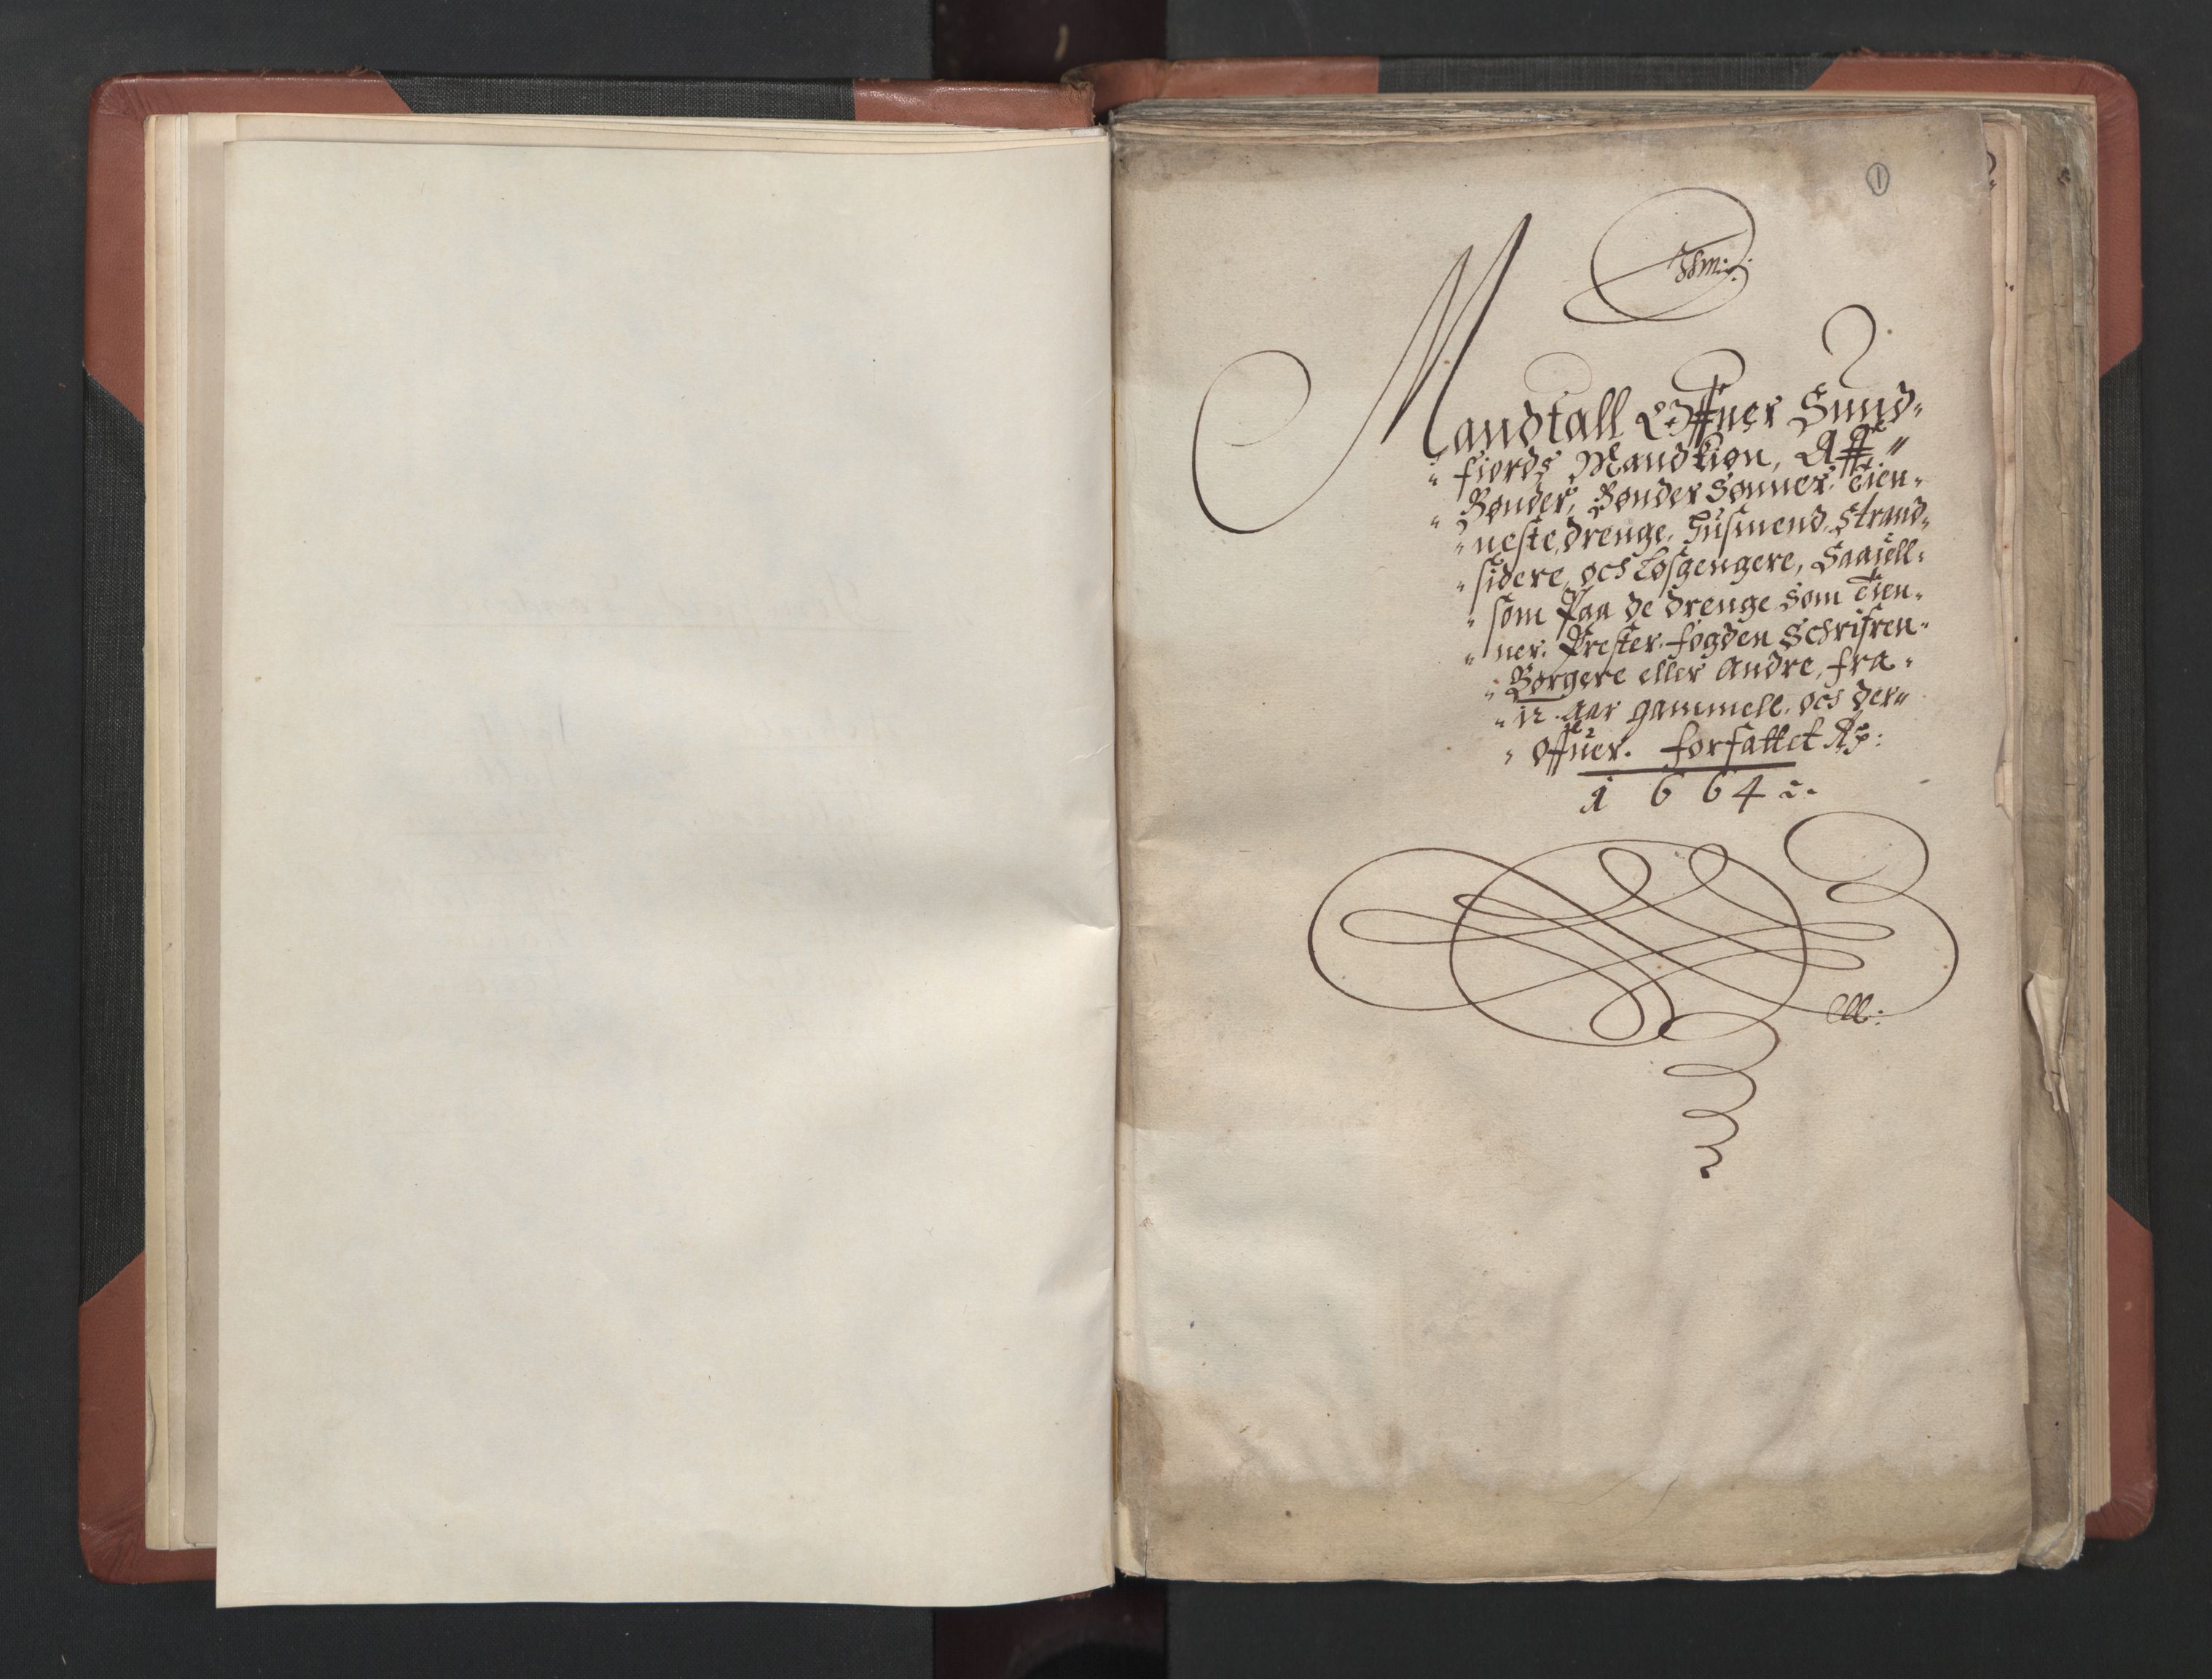 1
Mandtall Offuer Sund-
fiords Mandkiøn, Aff
Bønder, Bønder Sønner, Tien-
neste drenge, Husmend, Strand-
sidere, och Løsgengere, Saauell-
som Paa de drenge som Tien-
ner. Prester. fogden Schrifren-
Borgere eller Andre, fra-
12 Aar gammell. och der
Offuer. forfattet Ao:
1664